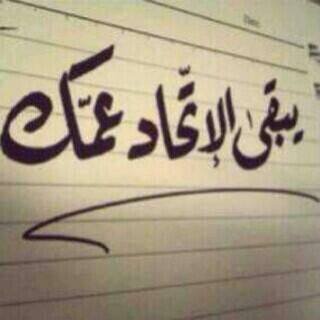 يبقىٰ الإتّحاد عمّك